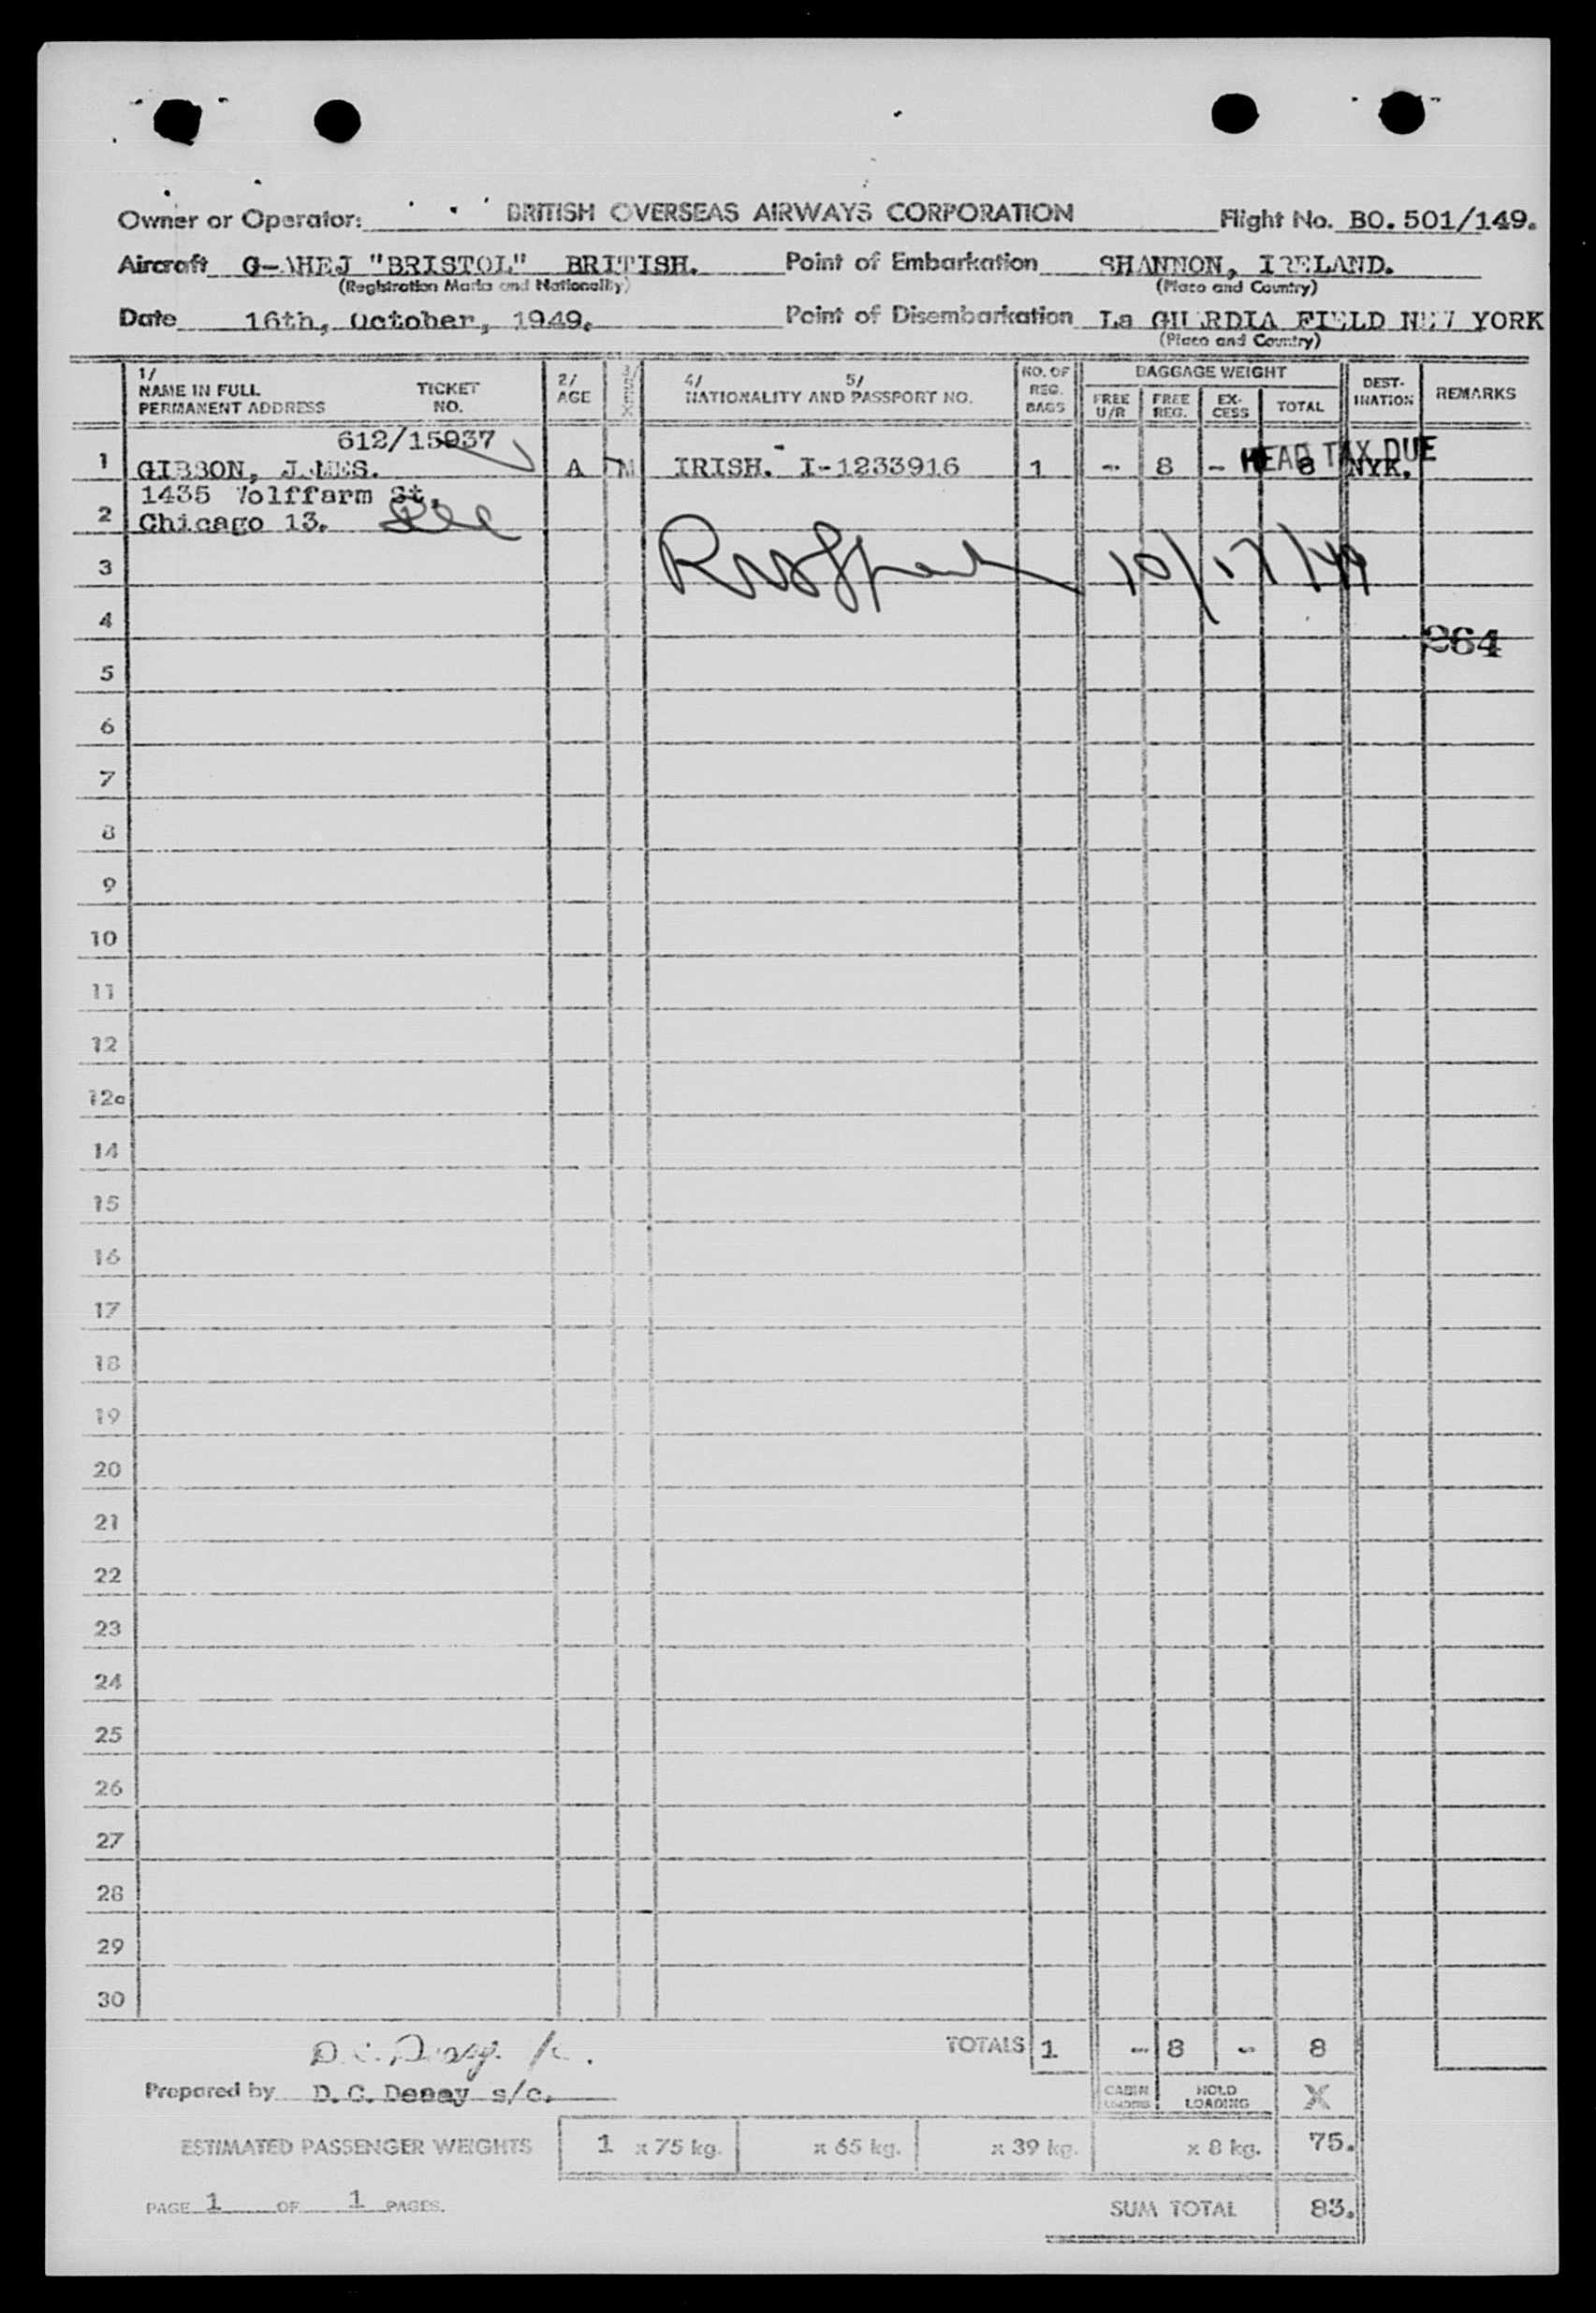 Owner or Operator: BRITISH OVERSEAS AIRWAYS CORPORATION Flight No. BO.501/149.
Aircraft G-AHEJ "BRISTOL" BRITISH. Point of Embarkation SHANNON, IRELAND.
(Registration Marks and Nationality) (Place and Country)
Date 16th, October, 1949. Point of Disembarkation La GUARDIA FIELD NEW YORK
(Place and Country)
1/ NAME IN FULL PERMANENT ADDRESS TICKET NO. 2/ AGE 3/ SEX 4/ 5/ NATIONALITY AND PASSPORT NO. NO. OF REG. BAGS BAGGAGE WEIGHT FREE U/R FREE REG. EX-CESS TOTAL DEST-INATION REMARKS
612/15937
HEAD TAX DUE
1 GIBBON, JAMES. A M IRISH. I-1233916 1 - 8 - 8 NYK.
1435 Wolffarm St.
2 Chicago 13. Ill
3 10/17/49
4
264
5
6
7
8
9
10
11
12
12a
14
15
16
17
18
19
20
21
22
23
24
25
26
27
28
29
30
TOTALS 1 - 8 - 8
Prepared by D.C. Deasy s/c. CABIN LOADING HOLD LOADING X
ESTIMATED PASSENGER WEIGHTS 1 x 75 kg. x 65 kg. x 39 kg. x 8 kg. 75.
PAGE 1 OF 1 PAGES. SUM TOTAL 83.